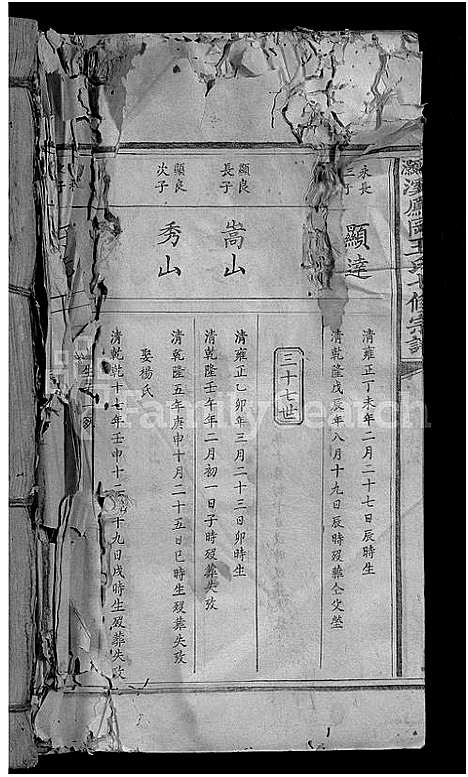 灝溪廖園王氏七修宗譜
永長
三子
顯達
清雍正丁未年二月二十七日辰時生
清乾隆戊辰年八月十九日辰時歿葬仝父塋
三十七世
顯良
長子
嵩山
清雍正乙卯年三月二十三日卯時生
清乾隆壬午年二月初一日子時歿葬失攷
顯良
次子
秀山
清乾隆五年庚申十月二十五日巳時生歿葬失攷
娶楊氏
清乾乾十七年壬申十二 十九日戌時生歿葬失攷
次子
生 歿
FamilySearch